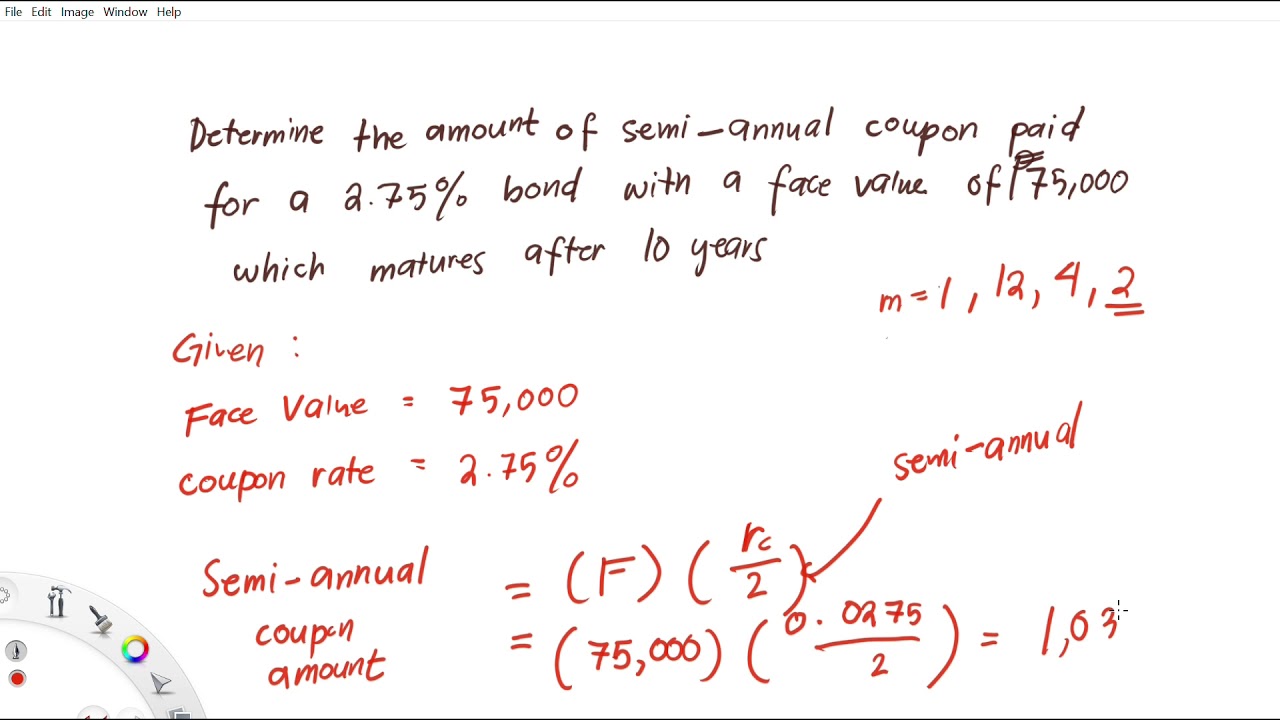 File Edit Image Window Help
Determine the amount of semi-annual coupon paid
for a 2.75% bond with a face value of ₱75,000
which matures after 10 years
m = 1, 12, 4, 2
Given :
Face Value = 75,000
coupon rate = 2.75%
semi-annual
Semi-annual = (F) ( rc / 2 )
coupon = (75,000) ( 0.0275 / 2 ) = 1,03
amount